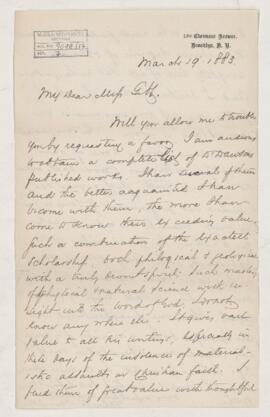 Clermont Avenue,
Brooklyn, N. Y.
McGILL UNIVERSITY
ACC. NO.
REF.
March 19. 1883
My Dear Miss
Will you allow me to trouble
you by requesting a favor. I am anxious
to obtain a complete list of Dr Dawson's
published works. I have several of them
and the better acquainted I have
become with them, the more I have
come to know their exceeding value.
Such a combination of the exactest
scholarship, both philological & 
with a truly devout spirit, such mastery
of physical & natural science with in-
sight into the word of God, I do not
know any where else. It gives
value to all his writings, especially in
these days of the insistence of material-
istic assaults on Christian faith. I
find them of great value with thoughtful